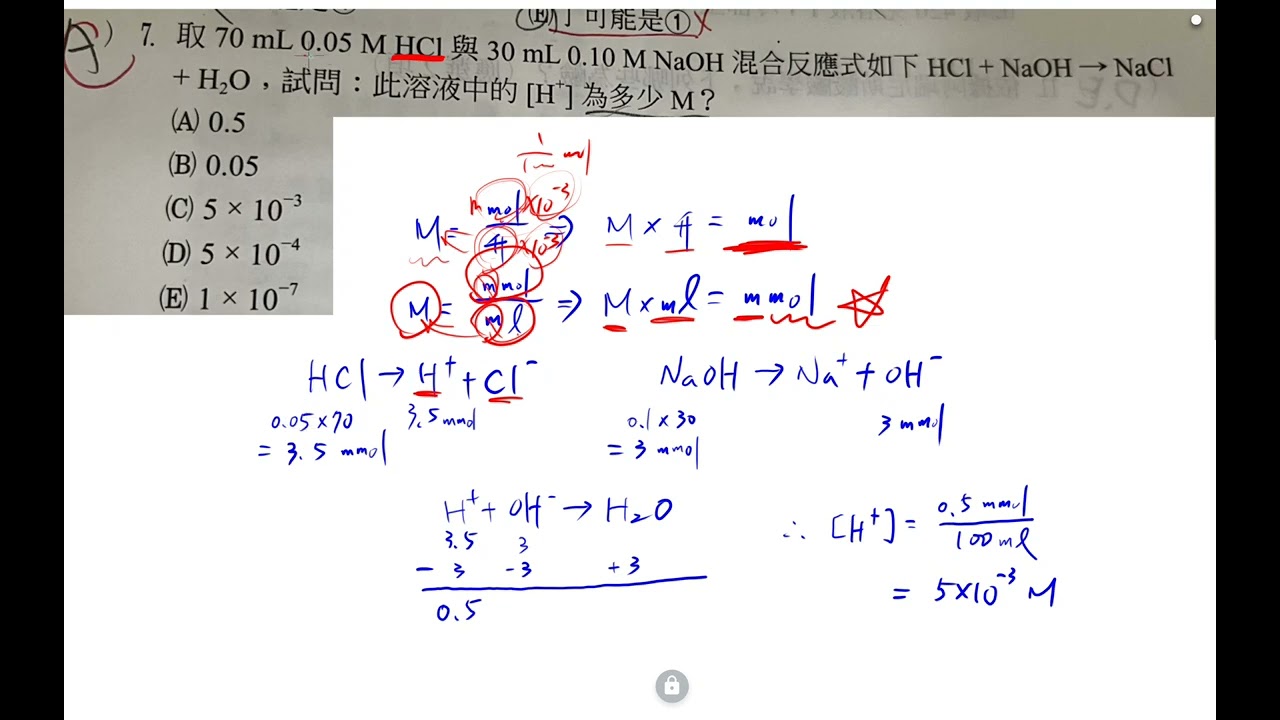 (B)丁可能是① X
(A) 7. 取 70 mL 0.05 M HCl 與 30 mL 0.10 M NaOH 混合反應式如下 HCl + NaOH → NaCl
+ H₂O,試問:此溶液中的 [H⁺] 為多少 M?
(A) 0.5
(B) 0.05
(C) 5 × 10⁻³
(D) 5 × 10⁻⁴
(E) 1 × 10⁻⁷
M = m mol × 10⁻³ / 升 × 10⁻³ ⇒ M × 升 = mol
M = mmol / ml ⇒ M × ml = mmol ☆
HCl → H⁺ + Cl⁻
0.05 × 70 3.5 mmol
= 3.5 mmol
NaOH → Na⁺ + OH⁻
0.1 × 30 3 mmol
= 3 mmol
H⁺ + OH⁻ → H₂O
3.5 3
- 3 - 3 + 3
0.5
∴ [H⁺] = 0.5 mmol / 100 ml
= 5×10⁻³ M